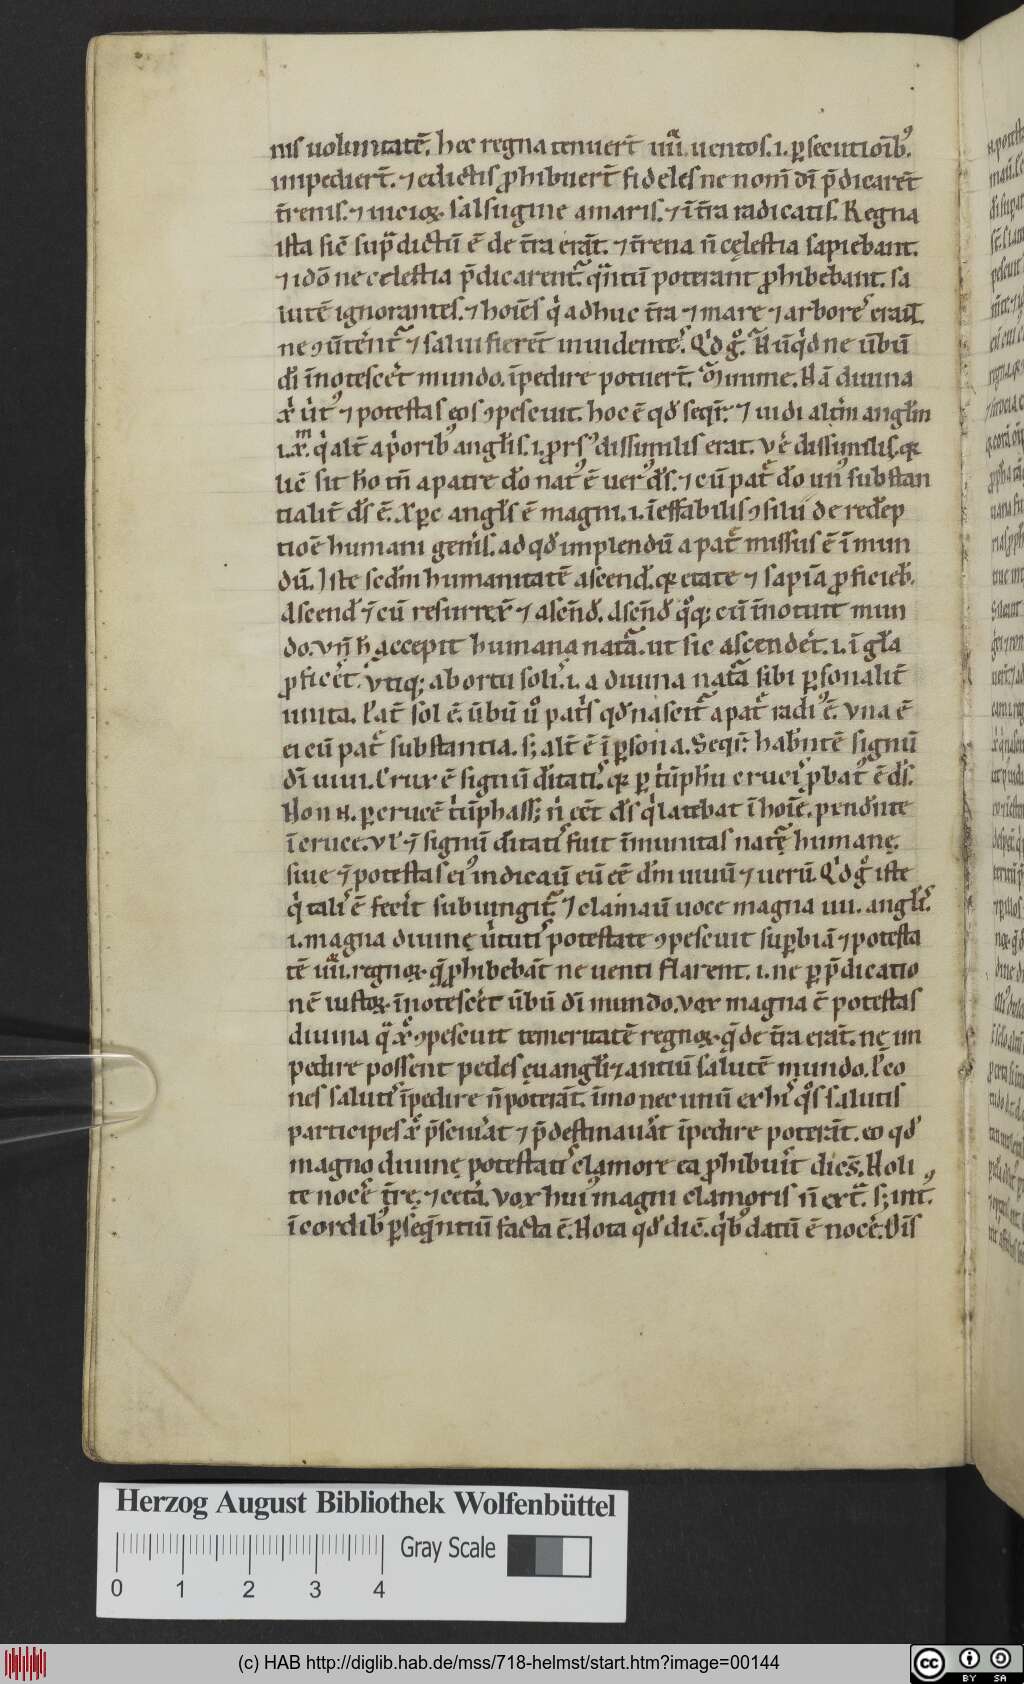 nis uoluntatē. hec regna tenuert̄ iiii. uentos. i. ꝑsecutioib᷒.
impediert̄. ⁊ edictis ꝓhibuert̄ fideles ne nom̄ dī p̄dicarēt
t̄renis. ⁊ uicioꝝ. salsugine amaris. ⁊ ī t̄ra radicatis. Regna
ista sic̄ sup̄ dictū ē de t̄ra erāt. ⁊ t̄rena n̄ cęlestia sapiebant.
⁊ idō ne celestia p̄dicarent᷒. qͣntū poterant ꝓhibebant. sa
lutē ignorantes. ⁊ hoīes qͥ adhuc t̄ra ⁊ mare ⁊ arbores erant.
ne ꝯūtērent᷒ ⁊ saluifierēt inuidentes. Qͥd gͦ. Nūqͥd ne ūbū
dī īnotescēt mundo. īpedire potuert̄. minime. Nā diuina
xp̄i uirt᷒ ⁊ potestas eos ꝯpescuit. hoc ē qd̄ seqͥr. ⁊ uidi altm̄ angłm
.i. xp̄m. qͥ alt̄ a pͥorib᷒ angłis. i. ꝓrs᷒ dissimilis erat. Vē dissimilis. qꝛ
licē sit ho tn̄ a patre dō nat᷒ ē uer᷒ ds̄. ⁊ cū patͤ dō un᷒ substan
tialit̄ ds̄ ē. Xp̄c angłs ē magni. i. īeffabilis ꝯsilii de redēp
tiōe humani genīs. ad qd̄ implendū a patͤ missus ē ī mun
dū. Iste scdm̄ humanitatē ascend̄. qꝛ etate ⁊ sapīa ꝓficieb̄.
Ascend̄ ⁊ cū resurrex̄ ⁊ ascn̄d̄. Ascn̄d̄ qͦqꝫ cū īnotuit mun
do. Vn̄ h accepit humana natͣā. ut sic ascendēt. i. ī gła
ꝓficēt. Vtiqꝫ ab ortu solis. i. a diuina natͣā sibi ꝑsonalit̄
unita. Pat̄ sol ē. ūbū uͦ patͥs qd̄ nascit᷒ a patͤ radi᷒ ē. Vna ē
ei cū patͤ substantia. sꝫ alt̄ ē ī ꝑsona. Seqͥr. hab̄ntē signū
dī uiui. Crux ē signū dītatis. qꝛ ꝑ tͥūphū crucis ꝓbat᷒ ē ds̄.
Non n̄. ꝑ crucē tͥūphass&#59; nͥ eēt ds̄ qͥ latebat ī hoīe. pend̄nte
ī cruce. Vł ⁊ signū dītatis fuit īmunitas natͣę humanę.
siue ⁊ potestas ei᷒ indicauͥ eū eē dm̄ uiuū ⁊ uerū. Qͥd gͦ iste
qͥ talis ē fecīt subiungit᷒. ⁊ clamauͥ uoce magna iiii. angłis.
.i. magna diuinę uͥtutis potestate ꝯpescuit supͥbiā ⁊ potesta
tē iiii. regnoꝝ. qͣ ꝓhibebāt ne uenti flarent. i. ne ꝑ p̄dicatio
nē iustoꝝ. īnotescēt ūbū dī mundo. Vox magna ē potestas
diuina qͣ xp̄s ꝯpescuit temeritatē regnoꝝ. qͣ de t̄ra erāt. ne im
pedire possent pedes euangłizantiū salutē mundo. Ōēo
nes salutis īpedire n̄ poterāt. īmo nec unū ex his qͦs salutis
participes xp̄s p̄sciuāt ⁊ p̄destinauāt īpedire poterāt. eo qd̄
magno diuinę potestatis clamore ea ꝓhibuīt dicēs. Noli
te nocē t̄rę. ⁊ cetͣ. Vox hui᷒ magni clamoris n̄ extͣ. sꝫ int᷒.
ī cordib᷒ ꝑseqͣntiū facta ē. Nota qd̄ dic̄. qͥb᷒ datū ē nocē. Diī
Herzog August Bibliothek Wolfenbüttel
Gray Scale
0 1 2 3 4
(c) HAB http://diglib.hab.de/mss/718-helmst/start.htm?image=00144
cc BY SA